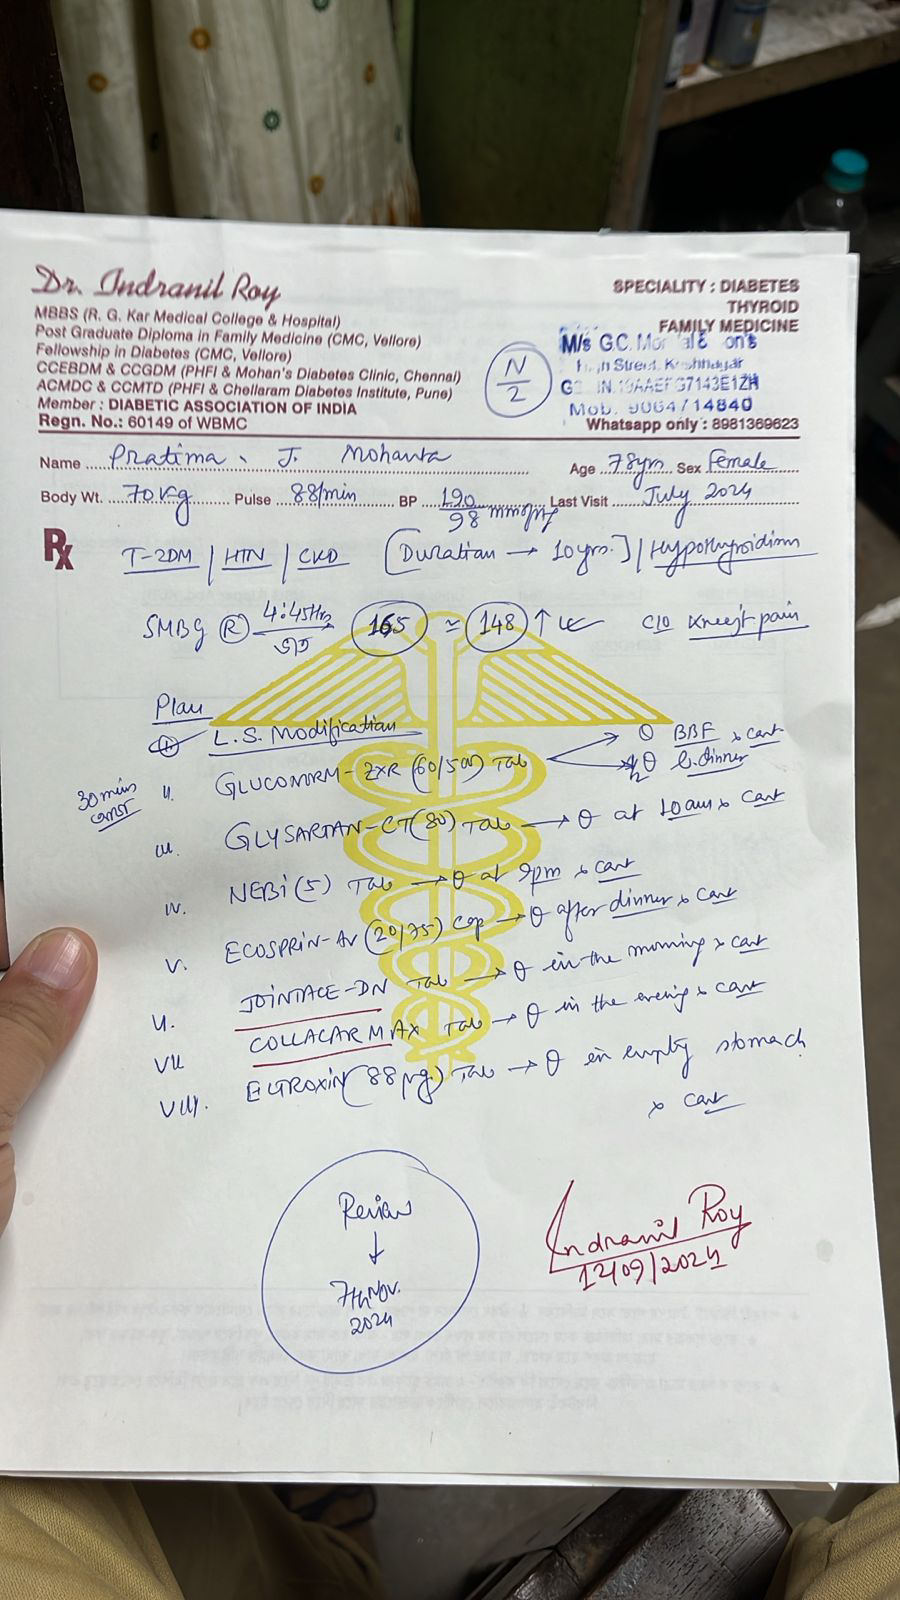 Dr. Indranil Roy
MBBS (R. G. Kar Medical College & Hospital)
Post Graduate Diploma in Family Medicine (CMC, Vellore)
Fellowship in Diabetes (CMC, Vellore)
CCEBDM & CCGDM (PHFI & Mohan's Diabetes Clinic, Chennai)
ACMDC & CCMTD (PHFI & Chellaram Diabetes Institute, Pune)
Member : DIABETIC ASSOCIATION OF INDIA
Regn. No.: 60149 of WBMC
N/2
SPECIALITY : DIABETES
THYROID
FAMILY MEDICINE
M/s G.C.
Street
Mob.
Whatsapp only : 8981369623
Name Pratima. J. Mohanta Age 78yrs Sex Female
Body Wt. 70 Kg Pulse 88/min BP 190/98 mmHg Last Visit July 2024
Rx T-2DM / HTN / CKD [Duration → 10yrs.] / Hypothyroidism
SMBG (R) 4:45Hrs 165 ≃ 148 ↑ c/o Kneejt pain
Plan
L.S. Modification
30 mins
ii. GLUCONORM-ZXR (60/500) Tab BBF x cont
dinner
iii. GLYSARTAN-CT(80) Tab → θ at 10am x cont
iv. NEBI (5) Tab → θ at 9pm x cont
v. ECOSPRIN-AV (20/75) Cap → θ after dinner x cont
JOINTACE-DN Tab → θ in the morning x cont
VII COLLACAR MAX Tab → θ in the evening x cont
VIII. ELTROXIN (88μg) Tab → θ in empty stomach
x cont
Review
↓
7th Nov.
2024
Indranil Roy
12/09/2024